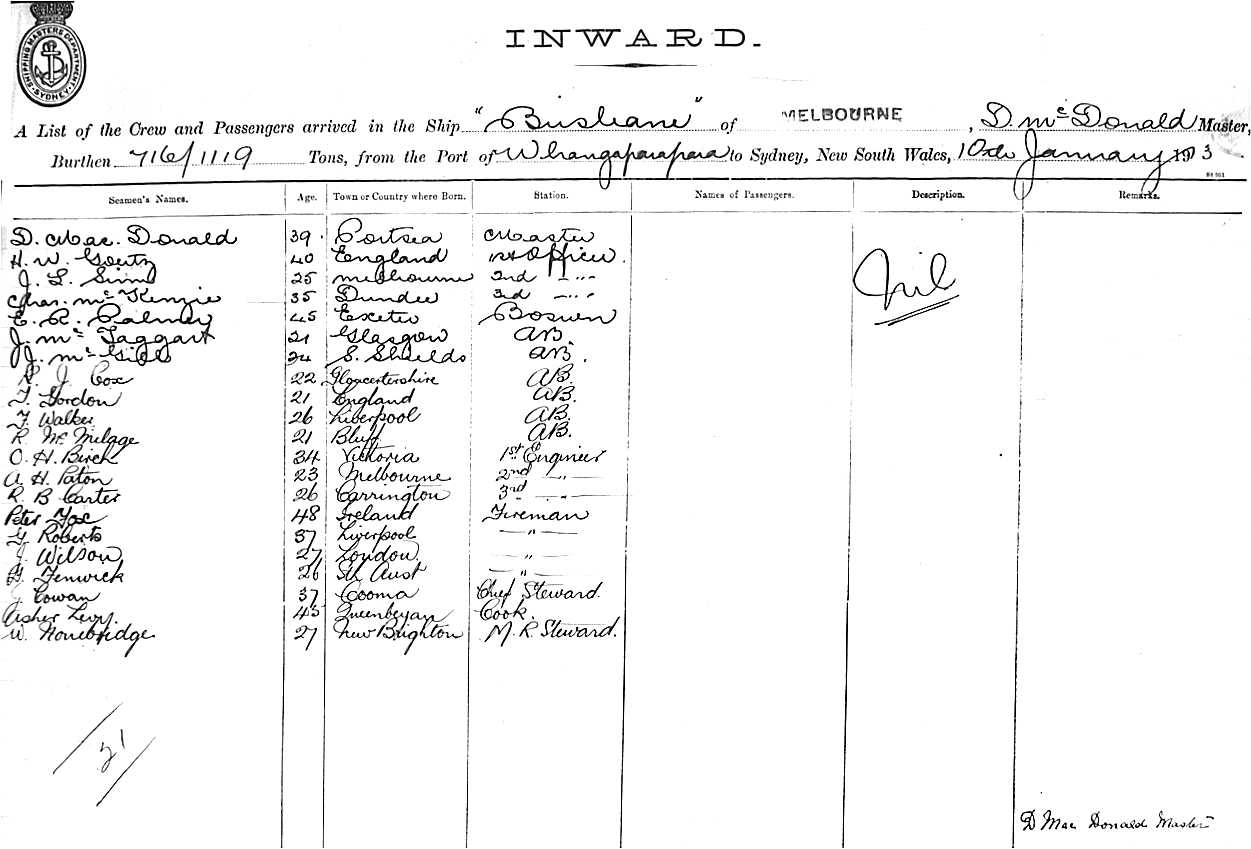 SHIPPING MASTERS DEPARTMENT SYDNEY
INWARD.
A List of the Crew and Passengers arrived in the Ship "Brisbane" of MELBOURNE, D. McDonald Master,
Burthen 716/1119 Tons, from the Port of Whangaparapara to Sydney, New South Wales, 10th January 1903
Seamen's Names. Age. Town or Country where Born. Station. Names of Passengers. Description. Remarks.
D. Mac. Donald 39 Portsea Master
H. W. Goutz 40 England 1st Officer. Nil
J. L. Sinn 25 Melbourne 2nd - " -
Chas. McKenzie 35 Dundee 3rd - " -
E. R. Palmer 45 Exeter Bosuen
J. McTaggart 21 Glasgow AB.
J. McGill 24 S. Shields AB.
R. J. Cox 22 Gloucestershire AB.
T. Gordon 21 England AB.
F. Walker 26 Liverpool AB.
R. Mc 21 Bluff AB.
C. H. Birch 34 Victoria 1st Engineer
A. H. Paton 23 Melbourne 2nd - " -
R. B Carter 26 Carrington 3rd - " -
Peter Fox 48 Ireland Fireman
G. Roberts 37 Liverpool - " -
J. Wilson 27 London. - " -
G. Fenwick 26 Sth Aust - " -
Cowan 37 Cooma Chief Steward.
Asher Levy. 43 Queenbeyan Cook.
W. Nonebridge 27 New Brighton M. R. Steward.
21
D Mac Donald Master